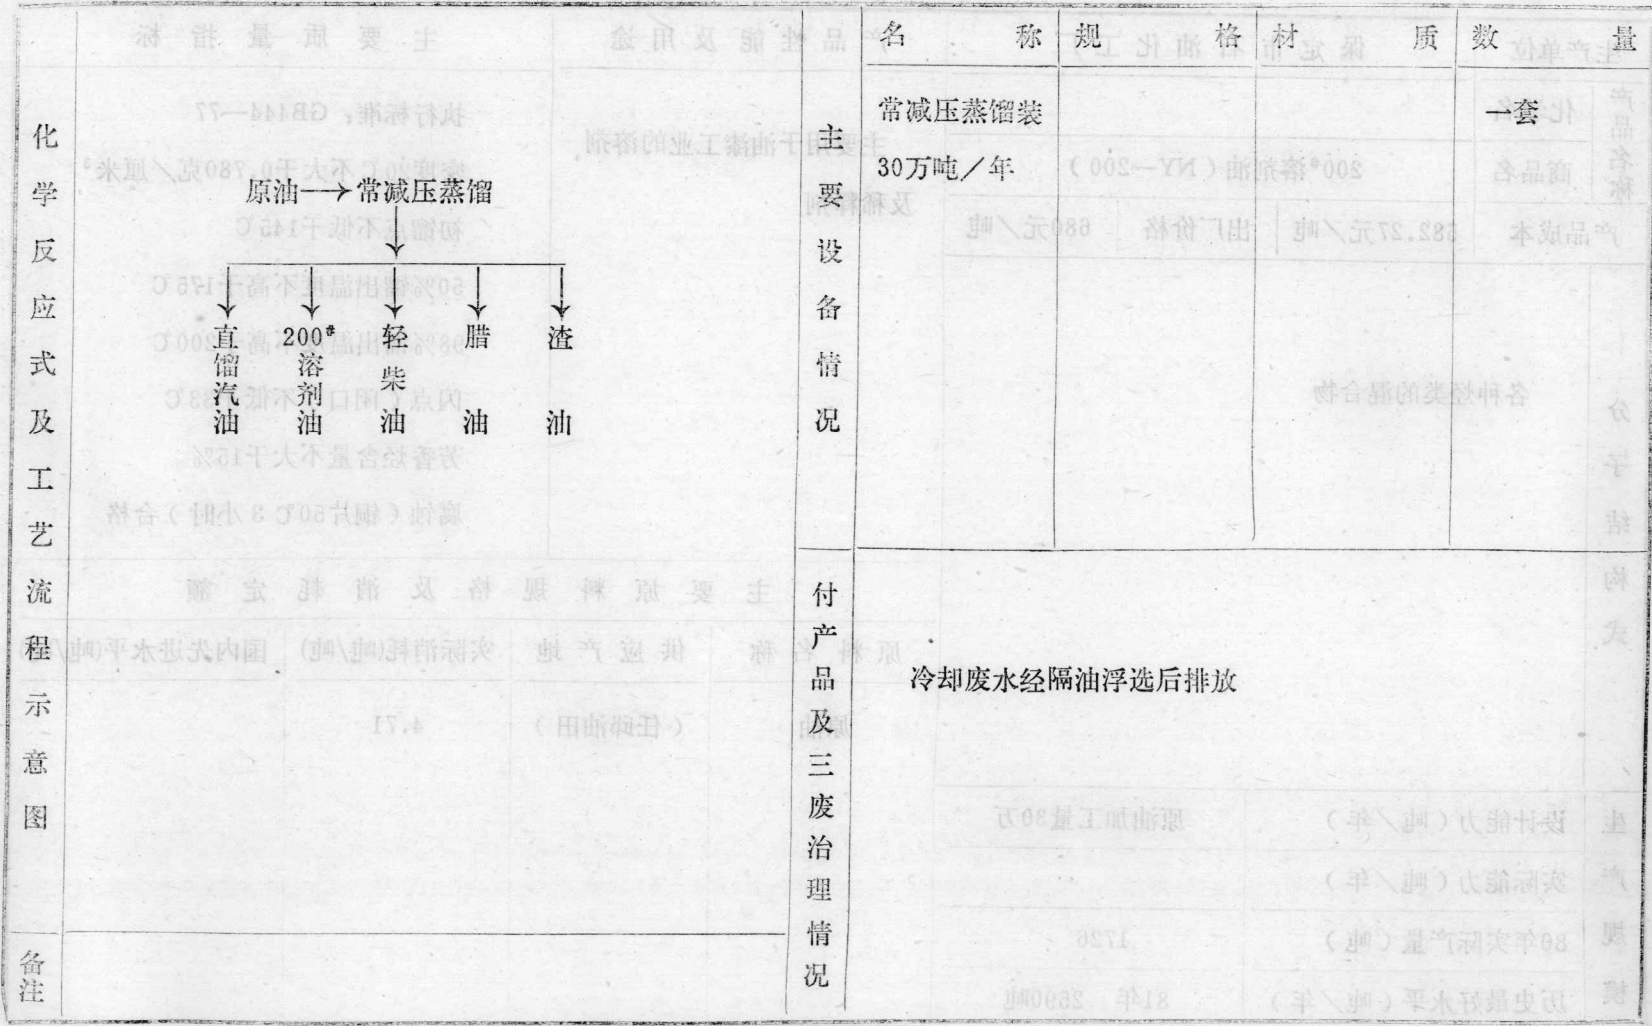 化学反应式及工艺流程示意图
原油→常减压蒸馏
直馏汽油
200#溶剂油
轻柴油
腊油
渣油
备注
主要设备情况
名称 规格 材质 数量
常减压蒸馏装 一套
30万吨/年
付产品及三废治理情况
冷却废水经隔油浮选后排放